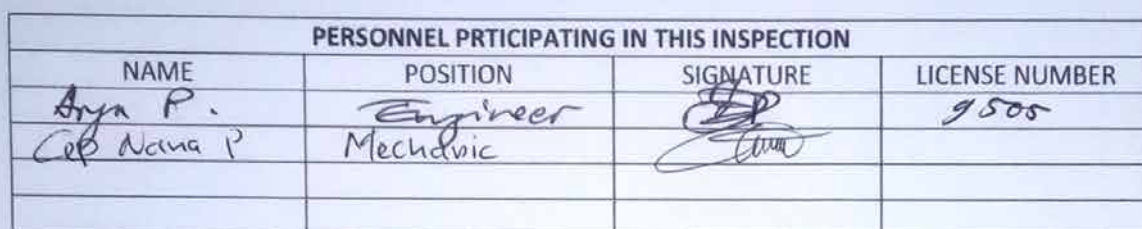 PERSONNEL PRTICIPATING IN THIS INSPECTION
NAME POSITION SIGNATURE LICENSE NUMBER
Arya P. Engineer 9505
Cep Nana P Mechanic